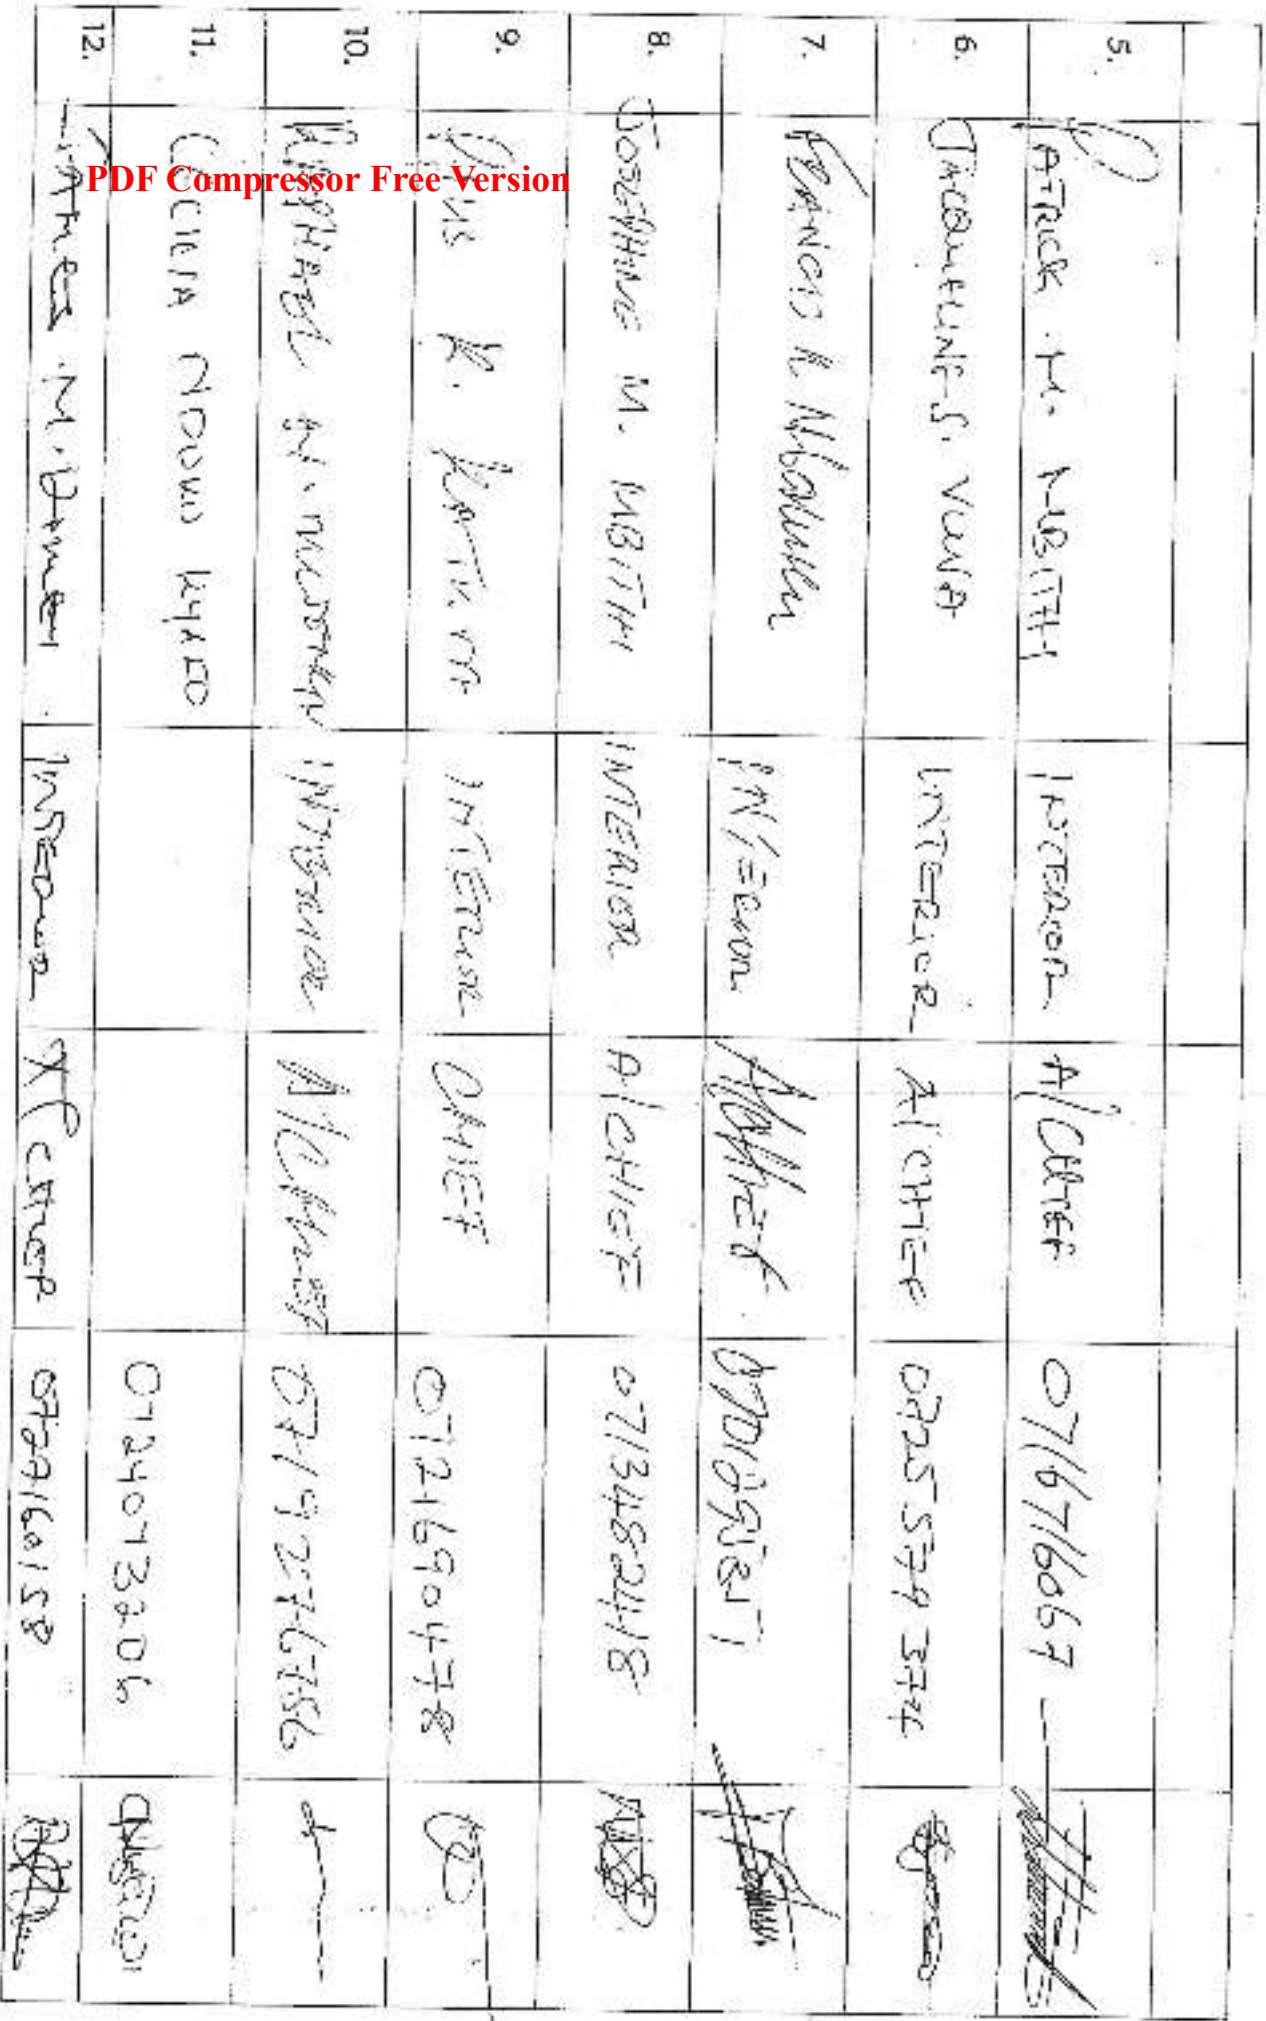 PDF Compressor Free Version
5. PATRICK M. MBITHI INTERIOR A/CHIEF 0716716067
6. JACQUELINE S. VUNA INTERIOR A/CHIEF 0725579374
7. FRANCIS K. INTERIOR A/CHIEF
8. JOSEPHINE M. MBITHI INTERIOR A/CHIEF 0713482418
9. PIUS K. INTERIOR CHIEF 0721690478
10. RAPHAEL N. INTERIOR A/CHIEF 0719276756
11. CECILIA NDUKU KYALO 0724073206
12. JAMES M. INTERIOR A/CHIEF 0727160158